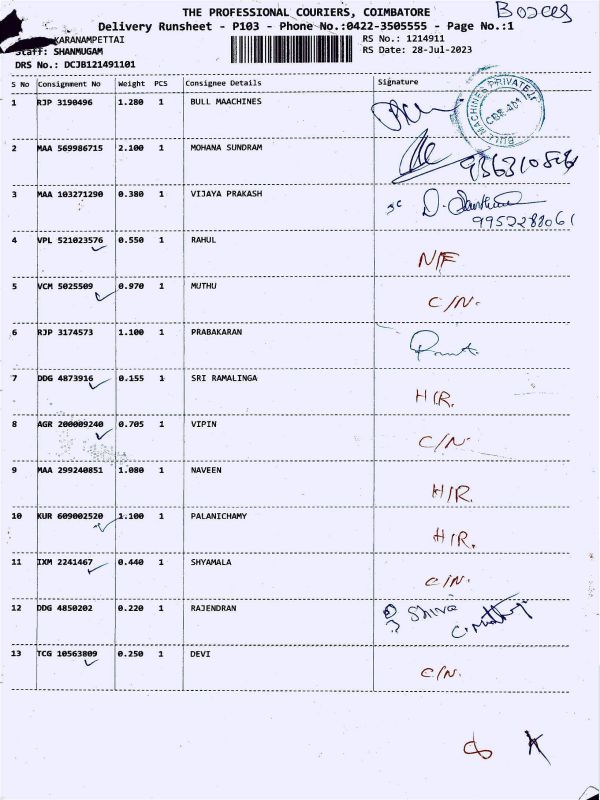 THE PROFESSIONAL COURIERS, COIMBATORE
Boxes
Delivery Runsheet - P103 - Phone No.:0422-3505555 - Page No.:1
KARANAMPETTAI RS No.: 1214911
Staff: SHANMUGAM RS Date: 28-Jul-2023
DRS No.: DCJB121491101
S No Consignment No Weight PCS Consignee Details Signature
1 RJP 3190496 1.280 1 BULL MAACHINES
BULL MACHINES PRIVATE
CBE-401
2 MAA 569986715 2.100 1 MOHANA SUNDRAM
3 MAA 103271290 0.380 1 VIJAYA PRAKASH
9952288061
4 VPL 521023576 0.550 1 RAHUL N/F
5 VCM 5025509 0.970 1 MUTHU C/N.
6 RJP 3174573 1.100 1 PRABAKARAN
7 DDG 4873916 0.155 1 SRI RAMALINGA H/R.
8 AGR 200009240 0.705 1 VIPIN C/N.
9 MAA 299240851 1.080 1 NAVEEN H/R.
10 KUR 609002520 1.100 1 PALANICHAMY H/R.
11 IXM 2241467 0.440 1 SHYAMALA C/N.
12 DDG 4850202 0.220 1 RAJENDRAN Shiva
13 TCG 10563809 0.250 1 DEVI C/N.